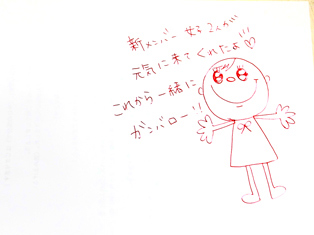 新メンバー 女子2人が
元気に来てくれたよ!!!♡
これから一緒に
ガンバロー!!